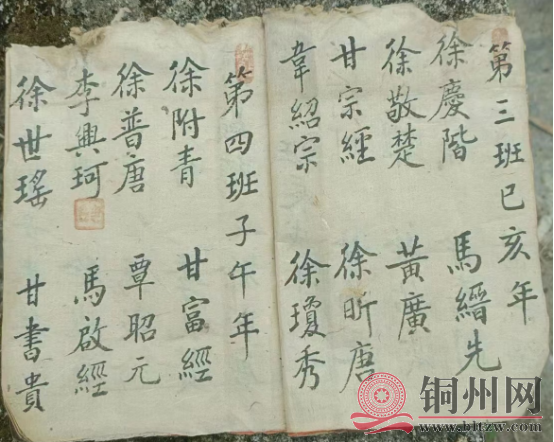 第三班巳亥年
徐慶階 馬縉先
徐敬楚 黃廣
甘宗經 徐昕唐
韋紹宗 徐瓊秀
第四班子午年
徐附青 甘富經
徐普唐 覃昭元
李興珂 馬啟經
徐世瑤 甘書貴
铜州网
www.bltzw.com